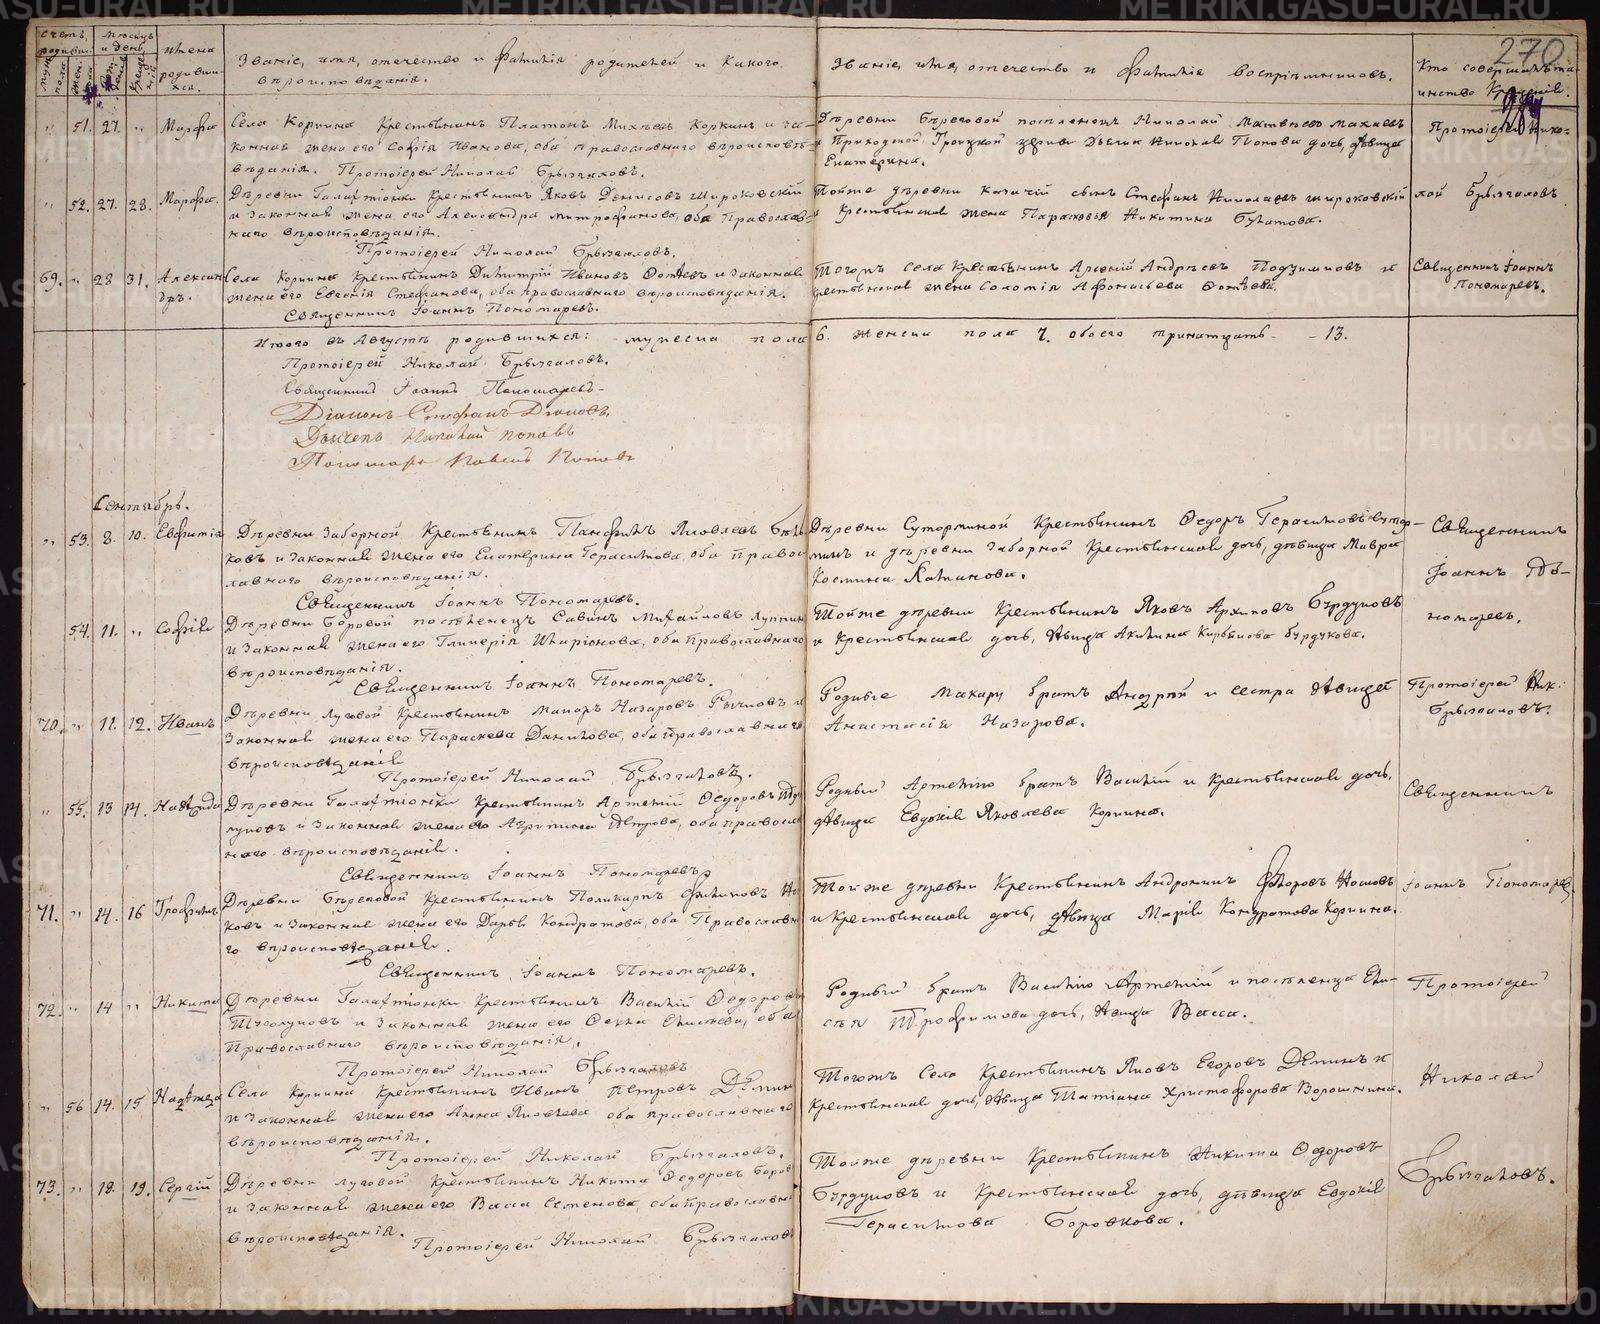 270
Счетъ родивш.
Мѣсяцъ и день
Имена родивши-
хся.
Званіе, имя, отечество и фамилія родителей и какого
вѣроисповѣданія.
Званіе, имя, отечество и фамилія воспріемниковъ.
Кто совершалъ та-
инство Крещенія.
„ 51. 27. „ Марѳа
Села Коркина Крестьянинъ Платонъ Михѣевъ Коркинъ и за-
конная жена его Софія Иванова, оба православнаго вѣроисповѣ-
вѣданія. Протоіерей Николай Брызгаловъ.
Деревни Береговой поселенецъ Николай Матвѣевъ
и Приходской Троицкой церкви Дьячка Николая Попова дочь, дѣвица
Екатерина.
Протоіерей Нико-
„ 52. 27. 28. Марѳа.
Деревни Галактіонки Крестьянинъ Яковъ Денисовъ Широковскій
и законная жена его Александра Митрофанова, оба Православ-
наго вѣроисповѣданія.
Протоіерей Николай Брызгаловъ.
Тойже деревни казачій сынъ Стефанъ Николаевъ Широковскій
и Крестьянская жена Парасковья Никитина Булатова.
лай Брызгаловъ.
69. „ 28 31. Алексан-
дръ.
Села Коркина Крестьянинъ Димитрій Ивановъ Фотѣевъ и законная
жена его Евгенія Стефанова, оба православнаго вѣроисповѣданія.
Священникъ Іоаннъ Пономаревъ.
Тогожъ села Крестьянинъ Арсеній Андреевъ Подкимновъ и
крестьянская жена Соломія Афонасьева Фотѣева.
Священникъ Іоаннъ
Пономаревъ.
Итого въ Августѣ родившихся: мужеска пола 6. женска пола 7. обоего тринатцать - - 13.
Протоіерей Николай Брызгаловъ.
Священникъ Іоаннъ Пономаревъ
Діаконъ Стефанъ
Дьячекъ Николай Поповъ
Пономарь Поповъ
Сентябрь.
„ 53. 8. 10. Евфимія
Деревни Заборной Крестьянинъ Панфилъ Яковлевъ
ковъ и законная жена его Екатерина Герасимова, оба право-
славнаго вѣроисповѣданія.
Священникъ Іоаннъ Пономаревъ.
Деревни Сутормикой Крестьянинъ Ѳедоръ Герасимовъ Сутор-
минъ и деревни Заборной Крестьянская дочь, дѣвица Мавра
Космина Калинова.
Священникъ
Іоаннъ По-
номаревъ.
54. 11. „ Софія
Деревни Боровой поселенецъ Савинъ Михайловъ Лупкинъ
и законная жена его Гликерія Иларіонова, оба православнаго
вѣроисповѣданія.
Священникъ Іоаннъ Пономаревъ.
Тойже деревни Крестьянинъ Яковъ Архиповъ Бурдуковъ
и Крестьянская дочь, дѣвица Акилина Бурдукова.
70. „ 11. 12. Иванъ
Деревни Луговой Крестьянинъ Макаръ Назаровъ Рычковъ и
законная жена его Параскева Данилова, оба православнаго
вѣроисповѣданія
Протоіерей Николай Брызгаловъ.
Родные Макару братъ Андрей и сестра дѣвица
Анастасія Назарова.
Протоіерей Ник:
Брызгаловъ.
„ 55. 13 14. Надежда
Деревни Галактіонки Крестьянинъ Артемій Ѳедоровъ
луповъ и законная жена его Агрипина Петрова, оба правосла-
наго вѣроисповѣданія.
Священникъ Іоаннъ Пономаревъ
Родный Артемію братъ Василій и крестьянская дочь,
дѣвица Евдокія Яковлева Коркина.
Священникъ
71. „ 14. 16 Трофимъ
Деревни Береговой Крестьянинъ Поликарпъ Филиповъ Но-
ковъ и законная жена его Дарья Кондратова, оба Православна-
го вѣроисповѣданія.
Священникъ Іоаннъ Пономаревъ.
Тойже деревни Крестьянинъ Андроникъ Ѳедоровъ Носковъ
и крестьянская дочь, дѣвица Марія Кондратова Коркина.
Іоаннъ Пономаревъ.
72. „ 14 „ Никита
Деревни Галактіонки Крестьянинъ Василій Ѳедоровъ
и законная жена его Ѳекла, оба
Православнаго вѣроисповѣданія.
Протоіерей Николай Брызгаловъ
Родный братъ Василію Артемій и поселенца Ели-
сѣя Трофимова дочь, дѣвица Васса.
Протоіерей
„ 56 14. 15 Надежда
Села Коркина Крестьянинъ Иванъ Петровъ Деминъ
и законная жена его Анна Яковлева оба православнаго
вѣроисповѣданія.
Протоіерей Николай Брызгаловъ.
Тогожъ Села Крестьянинъ Яковъ Егоровъ Деминъ и
крестьянская дочь, дѣвица Татіана Христофорова Ворошнина.
Николай
73. „ 18. 19. Сергій
Деревни Луговой Крестьянинъ Никита Ѳедоровъ Боров
и законная жена его Васса Семенова, оба православна
вѣроисповѣданія.
Протоіерей Николай Брызгаловъ
Тойже деревни Крестьянинъ Никита Ѳедоровъ
Бурдуковъ и Крестьянская дочь, дѣвица Евдокія
Герасимова Боровкова.
Брызгаловъ.
METRIKI.GASO-URAL.RU